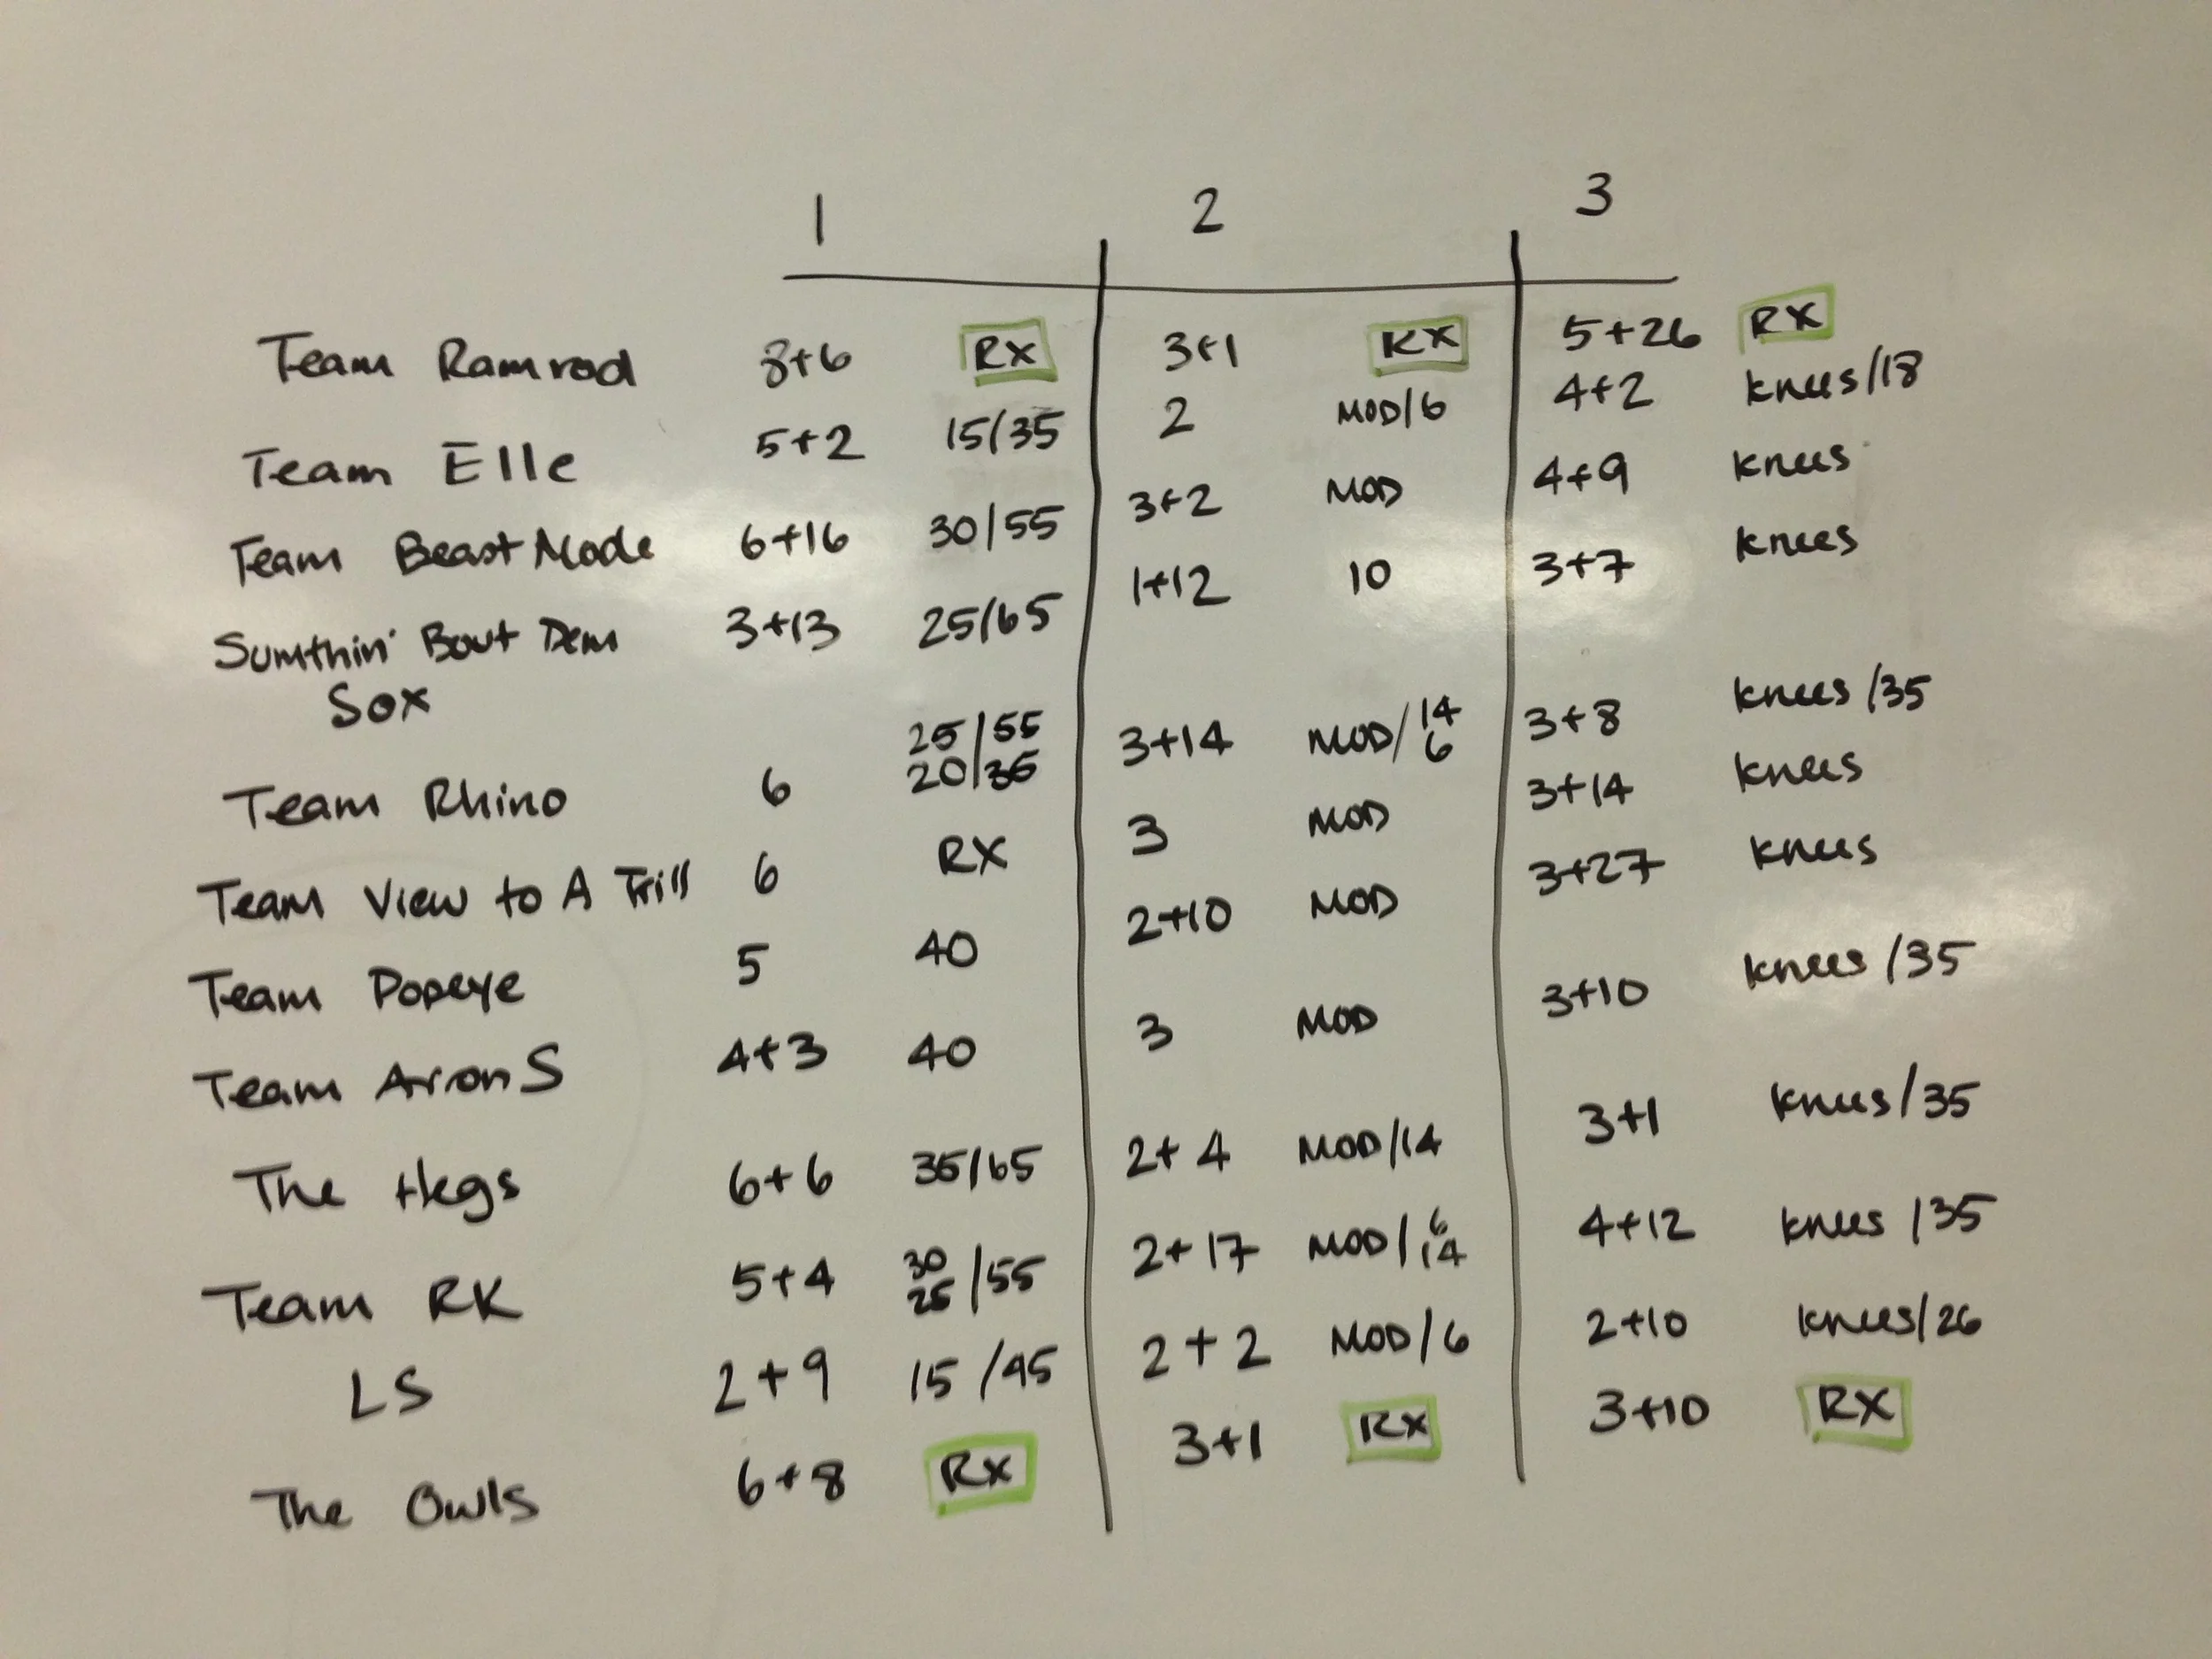 1 2 3
Team Ramrod 8+6 RX 3+1 RX 5+26 RX
Team Elle 5+2 15/35 2 MOD/6 4+2 knees/18
Team Beast Mode 6+16 30/55 3+2 MOD 4+9 knees
Sumthin' Bout Dem 3+13 25/65 1+12 10 3+7 knees
Sox
Team Rhino 6 25/55 20/35 3+14 MOD/14 6 3+8 knees/35
Team View to A Trill 6 RX 3 MOD 3+14 knees
Team Popeye 5 40 2+10 MOD 3+27 knees
Team Arron S 4+3 40 3 MOD 3+10 knees/35
The 6+6 35/65 2+4 MOD/14 3+1 knees/35
Team RK 5+4 30 25/55 2+17 MOD/6 14 4+12 knees/35
LS 2+9 15/45 2+2 MOD/6 2+10 knees/26
The Owls 6+8 RX 3+1 RX 3+10 RX